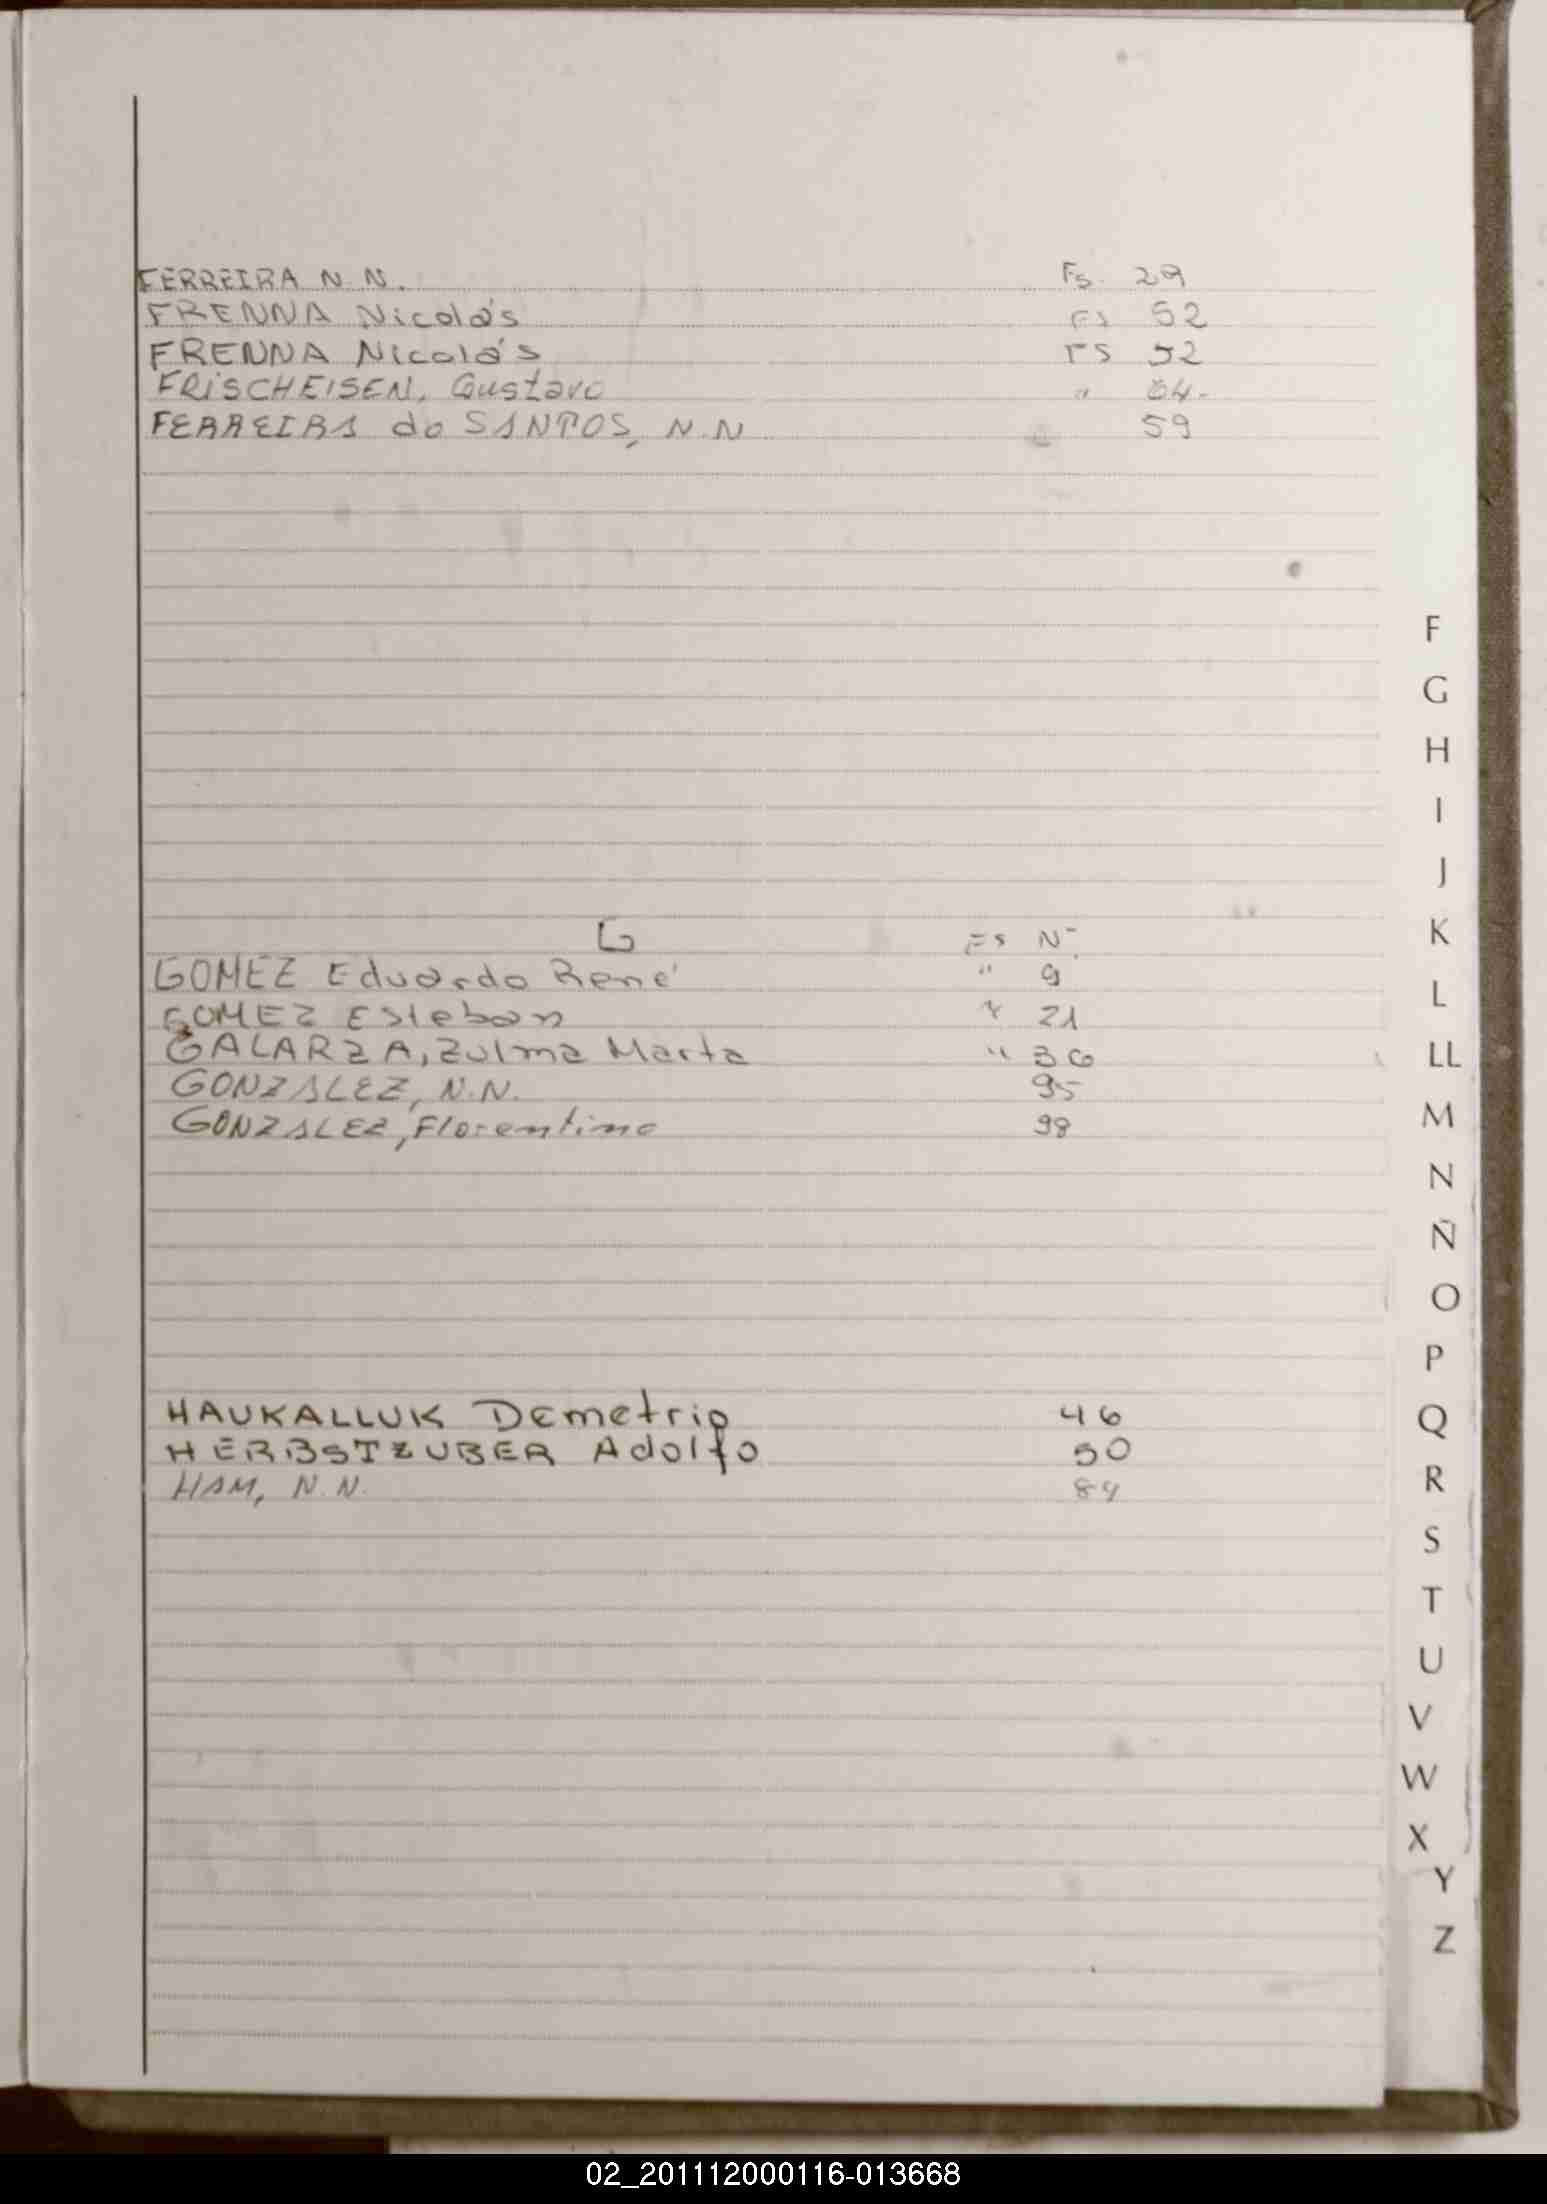 FERREIRA N.N. Fs. 29
FRENNA Nicolás Fs 52
FRENNA Nicolás FS 52
FRISCHEISEN, Gustavo " 64.
FERREIRA do SANTOS, N.N 59
G Fs Nº
GOMEZ Eduardo René " 9
GOMEZ Esteban " 21
GALARZA, Zulma Marta " 36
GONZALEZ, N.N. 95
GONZALEZ, Florentino 98
HAUKALLUK Demetrio 46
HERBSTZUBER Adolfo 50
HAM, N.N. 84
F
G
H
I
J
K
L
LL
M
N
Ñ
O
P
Q
R
S
T
U
V
W
X
Y
Z
02_201112000116-013668